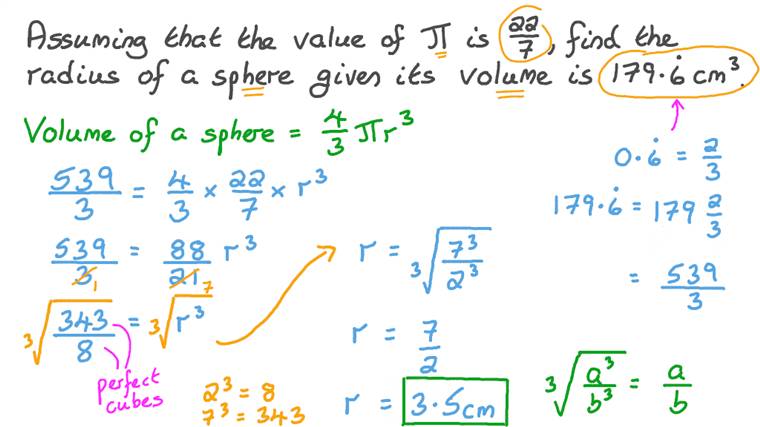 Assuming that the value of π is 22/7, find the
radius of a sphere given its volume is 179.6̇ cm³.
Volume of a sphere = 4/3 πr³
0.6̇ = 2/3
539/3 = 4/3 × 22/7 × r³
179.6̇ = 179 2/3
539/3₁ = 88/21₇ r³
= 539/3
∛(343/8) = ∛(r³)
perfect
cubes
2³ = 8
7³ = 343
r = ∛(7³/2³)
r = 7/2
r = 3.5cm
∛(a³/b³) = a/b